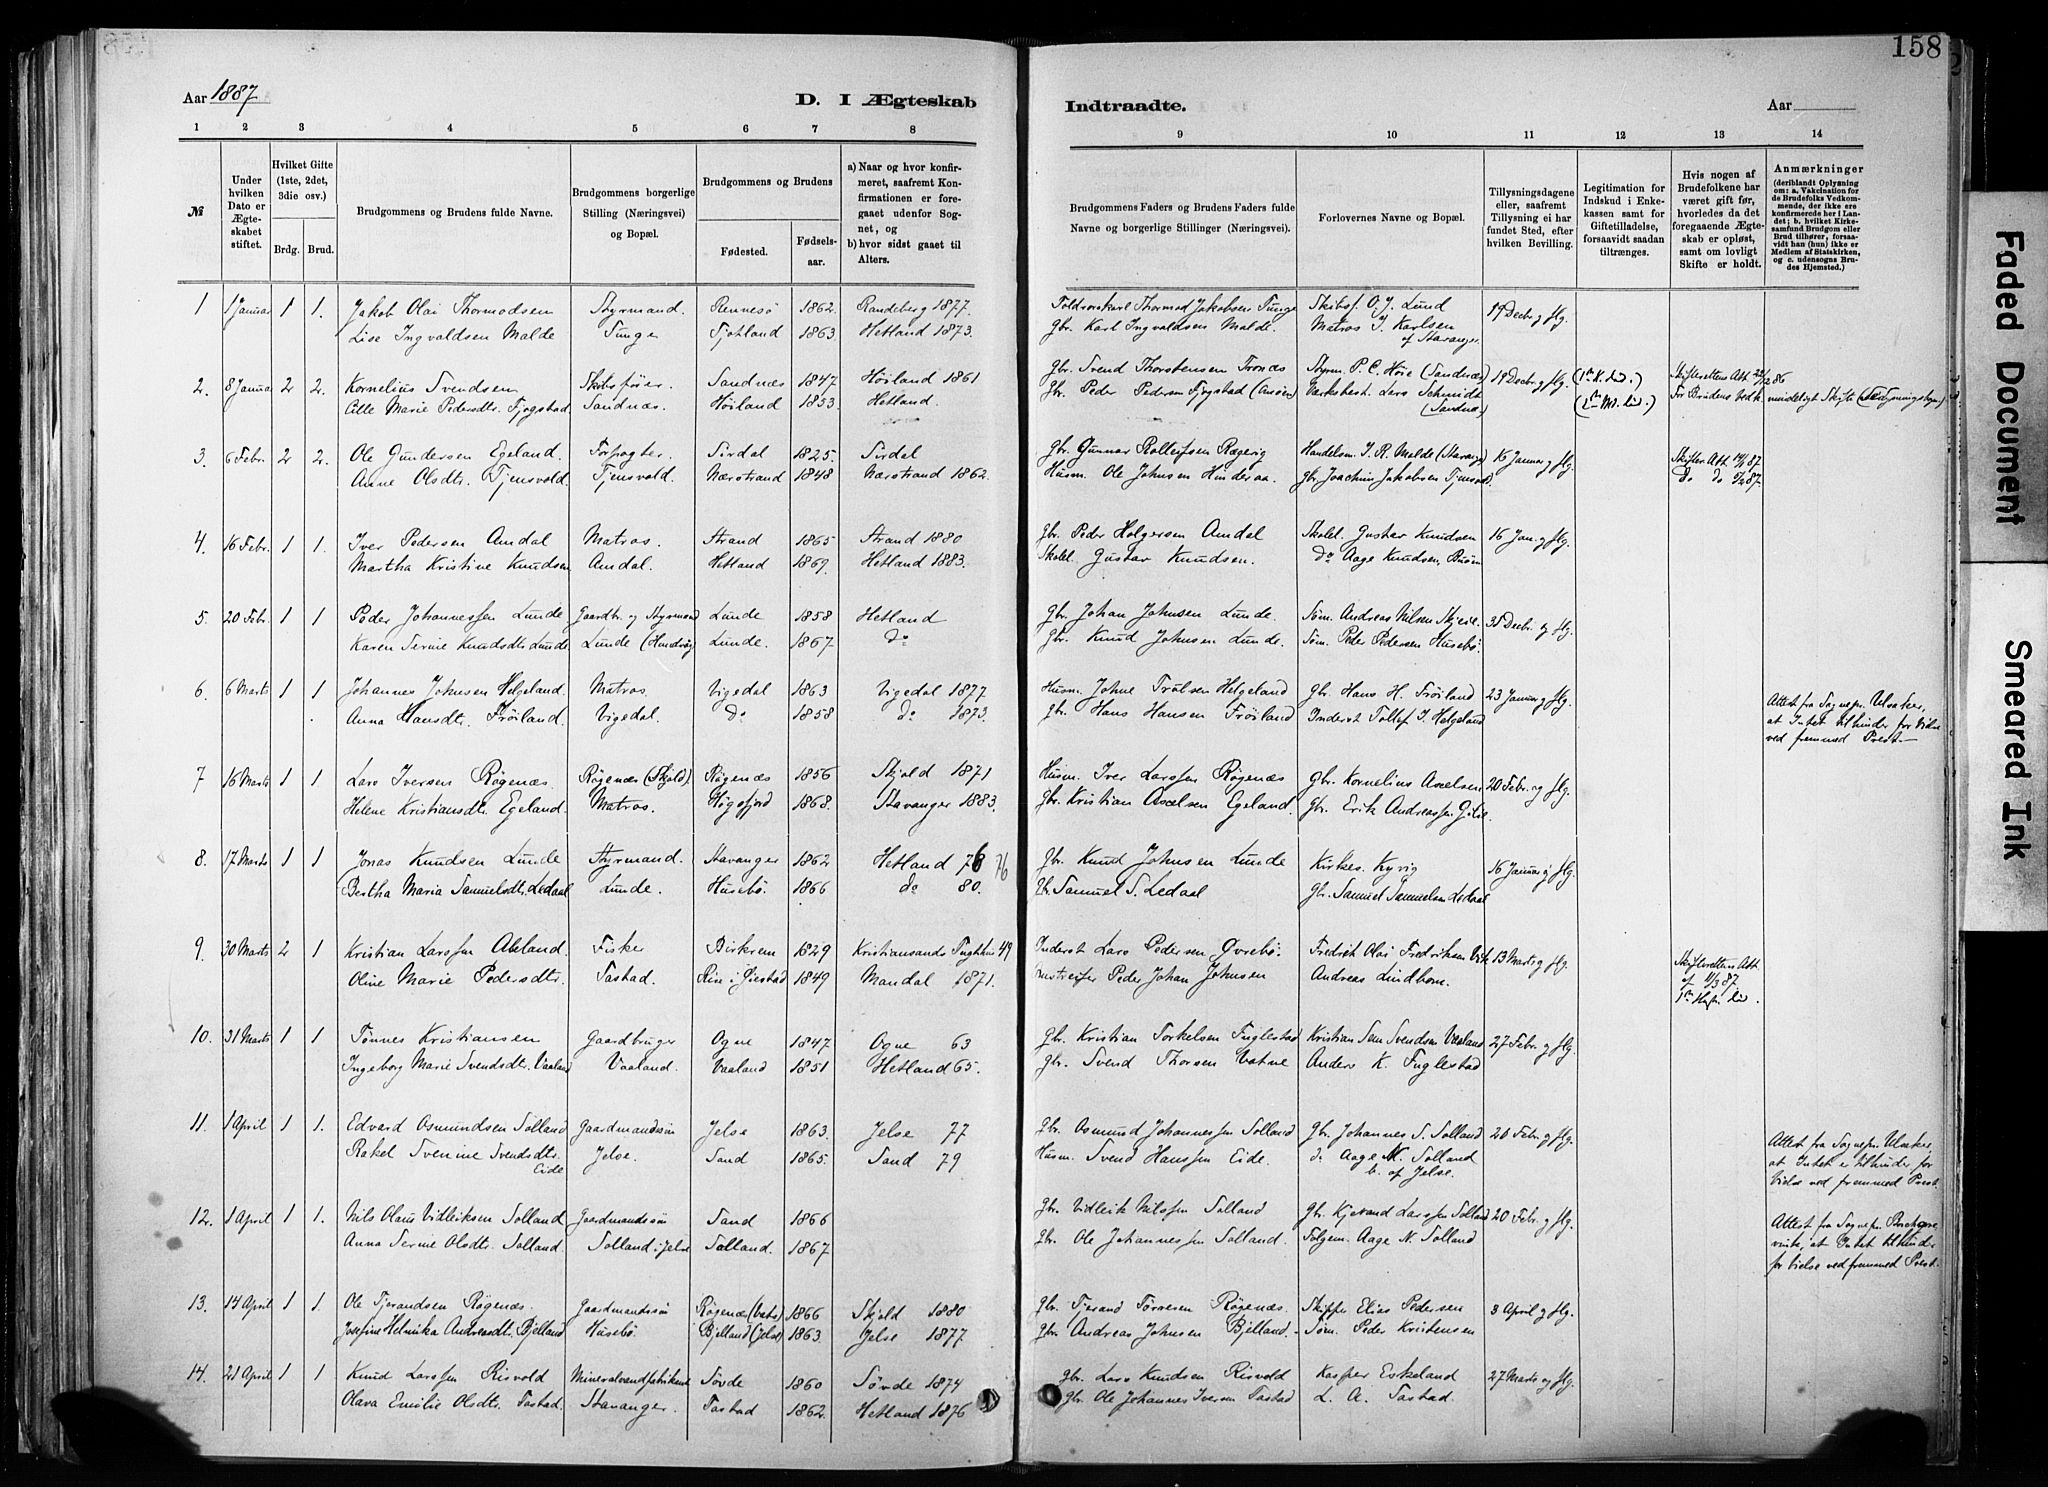 158
Aar 1887
D. I Ægteskab
Indtraadte.
Aar
1 2 3 4 5 6 7 8
9 10 11 12 13 14
№
Under hvilken Dato er Ægteskabet stiftet.
Hvilket Gifte (1ste, 2det, 3die osv.)
Brdg. Brud.
Brudgommens og Brudens fulde Navne.
Brudgommens borgerlige Stilling (Næringsvei) og Bopæl.
Brudgommens og Brudens
Fødested.
Fødselsaar.
a) Naar og hvor konfirmeret, saafremt Konfirmationen er foregaaet udenfor Sognet, og
b) hvor sidst gaaet til Alters.
Brudgommens Faders og Brudens Faders fulde Navne og borgerlige Stillinger (Næringsvei).
Forlovernes Navne og Bopæl.
Tillysningsdagene eller, saafremt Tillysning ei har fundet Sted, efter hvilken Bevilling.
Legitimation for Indskud i Enkekassen samt for Giftetilladelse, forsaavidt saadan tiltrænges.
Hvis nogen af Brudefolkene har været gift før, hvorledes da det foregaaende Ægteskab er opløst, samt om lovligt Skifte er holdt.
Anmærkninger
(deriblandt Oplysning om: a. Vakcination for de Brudefolks Vedkommende, der ikke ere konfirmerede her i Landet; b. hvilket Kirkesamfund Brudgom eller Brud tilhører, forsaavidt han (hun) ikke er Medlem af Statskirken, og c. udensogns Brudes Hjemsted.)
1 1 Januar 1 1. Jakob Olai Thormodsen Styrmand. Rennesö 1862. Randeberg 1877. Toldroerskarl Thormod Jakobsen Tunge Skibsf. O. J. Lund 19 Decbr. og flg.
Lise Ingvaldsen Malde Tunge Tjotland 1863. Hetland 1873. Gbr. Karl Ingvaldsen Malde. Matros I. Karlsen
af Stavanger
2. 8 Januar 2 2. Kornelius Svendsen Skibsfører. Sandnæs 1847 Höiland 1861 Gbr. Svend Thorstensen Tronæs Styrm. P. C. Höie (Sandnæs) 19 Decbr. og flg. Skifterettens Att. 22/12 86
Peders dt. Fjogstad Sandnæs. Höiland 1853 Hetland. Gbr. Peder Pedersen Fjogstad Lars Schmidt
(Sandnæs)
3. 6 Febr. 2 2. Ole Gundersen Egeland. Forpagter. Sirdal 1825. Sirdal Gbr. Gunnar Handelsm. I. R. Malde (Stavanger) 16 Januar og flg. Skifter. Att. 87
Anne Olsdtr. Tjensvold. Tjensvold. Nærstrand 1848 Nærstrand 1862. Husm. Ole Johnsen Hinderaa. Gbr. Joachim Jakobsen Tjensvold. do do 87.
4. 16 Febr. 1 1. Iver Pedersen Amdal Matros. Strand 1865 Strand 1880 Gbr. Peder Holgersen Amdal Skolel. Gustav Knudsen 16 Jan. og flg.
Martha Kristine Knudsen Amdal. Hetland 1869. Hetland 1883. Skolel. Gustav Knudsen. do Aage Knudsen, Buöen
5. 20 Febr. 1 1 Peder Johannessen Lunde Gaardbr. og Styrmand Lunde 1858 Hetland Gbr. Johan Johnsen Lunde. Söm. Andreas Nilsen Decbr. og flg.
Karen Serine Knudsdt. Lunde Lunde (Hundvåg) Lunde. 1867. do Gbr. Knud Johnsen Lunde. Söm. Peder Pedersen Husebö.
6. 6 Marts 1 1 Johannes Johnsen Helgeland. Matros. Vigedal 1863 Vigedal 1877 Husm. Johne Helgeland Gbr. Hans H. Fröiland 23 Januar og flg. Attest fra Sognepr. Ulsaker,
Anna Hansdt. Fröiland. Vigedal. do 1858 do 1873. Gbr. Hans Hansen Fröiland Inderst Tollef I. Helgeland at Intet til hinder for Vielse
ved fremmed Prest
7 16 Marts 1 1 Lars Iversen Rögenæs Rögenæs (Skjold). Rögenæs 1856 Skjold 1871 Husm. Iver Larssen Rögenæs Gbr. Kornelius Axelsen 20 Febr. og flg.
Helene Kristiansdt. Egeland. Matros. Högsfjord 1868. Stavanger 1883. Gbr. Kristian Axelsen Egeland. Gbr. Erik Andreassen
8. 17 Marts 1 1 Jonas Knudsen Lunde Styrmand. Stavanger 1862 Hetland 76 76 Gbr. Knud Johnsen Lunde Kirkes. Kyvig 16 Januar og flg.
Bertha Maria Samuelsdt. Ledaal Lunde. Husebö. 1866 do 80. Gbr. Samuel S. Ledaal Gbr. Samuel Samuelsen Ledaal
9. 30 Marts 2 1 Kristian Larssen Aaland. Fisker Birkrem 1829 Kristiansands Tugthus 49 Inderst Lars Pedersen Övrebö. Fredrik Olai Fredriksen Vik 13 Marts og flg. Skifterettens Att.
Oline Marie Pedersdt. Tastad. Rise i Öiestad 1849 Mandal 1871. Peder Johan Johnsen Andreas Lindbom. af 11/3 87.
10. 31 Marts 1 1 Tönnes Kristiansen Gaardbruger Ogne 1847 Ogne 63 Gbr. Kristian Torkelsen Fuglestad Kristian Sem Svendsen Vaaland 27 Febr. og flg.
Ingeborg Marie Svendsdt. Vaaland Vaaland. Vaaland 1851 Hetland 65. Gbr. Svend Thorsen Vatne Anders K. Fuglestad
11. 1 April 1 1. Edvard Osmundsen Solland Gaardmandssön Jelse 1863. Jelse 77 Gbr. Osmund Johannessen Solland Gbr. Johannes S. Solland 20 Febr. og flg. Attest fra Sognepr. Ulsaker
Rakel Svenine Svendsdt. Jelse. Sand 1865. Sand 79 Husm. Svend Hanssen Eide. do Aage N. Solland at Intet er til hinder for
Eide b. af Jelse. Vielse ved fremmed Prest.
12. 1 April 1 1. Nils Olaus Vidleiksen Solland Gaardmandssön Sand 1866 Gbr. Vidleik Nilssen Solland Gbr. Kjerand Larssen Solland 20 Febr. og flg. Attest fra Sognepr.
Anna Serine Olsdt. Solland. Solland i Jelse Solland. 1867 Gbr. Ole Johannessen Solland. Aage N. Solland at Intet til hinder
for Vielse ved fremmed Prest.
13. 14 April 1 1. Ole Tjerandsen Rögenæs. Gaardmandssön Rögenæs (Vats) 1866 Skjold 1880 Gbr. Tjerand Rögenæs. Skipper Elias Pedersen 3 April og flg.
Josefine Helmika Andreasdt. Bjelland Husebö. Bjelland (Jelse) 1863. Jelse 1877 Gbr. Andreas Johnsen Bjelland. Söm. Peder Kristensen
14. 21 April 1 1 Knud Larssen Risvold Mineralvandfabrikant Sövde 1860 Sövde 1874 Gbr. Lars Knudsen Risvold Kasper Eskeland 27 Marts og flg.
Olava Emilie Olsdt. Tastad. Stavanger. Tastad 1862. Hetland 1876 Gbr. Ole Johannes Iversen Tastad L. A. Tastad.
Faded Document
Smeared Ink